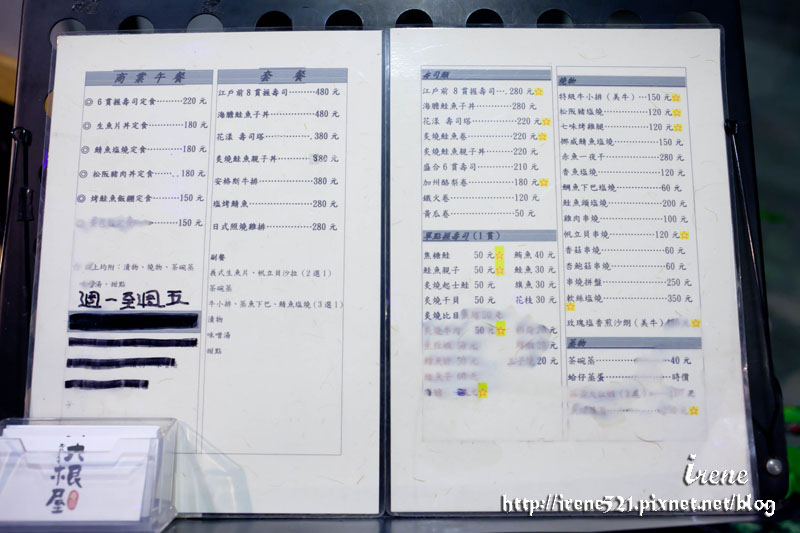 商業午餐
◎ 6貫握壽司定食………220 元
◎ 生魚片丼定食………180 元
◎ 鯖魚塩燒定食………180 元
◎ 松阪豬肉丼定食……180 元
◎ 烤鮭魚飯糰定食……150 元
150 元
上均附：漬物、燒物、茶碗蒸
味噌湯、甜點
週一至週五
套 餐
江戶前8貫握壽司………480 元
海膽鮭魚子丼…………480 元
花漾 壽司塔…………380 元
炙燒鮭魚親子丼………380 元
安格斯牛排……………380 元
塩烤鯖魚………………280 元
日式照燒雞排…………280 元
副餐
義式生魚片、帆立貝沙拉(2選1)
茶碗蒸
牛小排、蒸魚下巴、鯖魚塩燒(3選1)
漬物
味噌湯
甜點
壽司類
江戶前 8貫握壽司…280 元☆
海膽鮭魚子丼………280 元
花漾 壽司塔…………220 元☆
炙燒鮭魚卷…………220 元☆
炙燒鮭魚親子丼……220 元
盛合6貫壽司………210 元
加州酪梨卷…………180 元☆
鐵火卷………………120 元
黃瓜卷………………50 元
單點握壽司(1貫)
焦糖鮭 50 元☆ 鯛魚 40 元
鮭魚親子 50 元☆ 鮭魚 30 元
炙燒起士鮭 50 元 旗魚 30 元
炙燒干貝 50 元 花枝 30 元
炙燒比目
50 元☆ 30 元
30 元
20 元
燒物
特級牛小排(美牛)…150 元☆
松阪豬塩燒…………120 元☆
七味烤雞腿…………120 元☆
挪威鯖魚塩燒………150 元
赤魚一夜干…………280 元
香魚塩燒……………120 元
鯛魚下巴塩燒………60 元
鮭魚頭塩燒…………200 元
雞肉串燒……………100 元
帆立貝串燒…………120 元☆
香菇串燒……………60 元
杏鮑菇串燒…………60 元
串燒拼盤……………250 元
軟絲塩燒……………350 元
☆
玫瑰塩香煎沙朗(美牛) 元☆
蒸物
茶碗蒸………………40 元
蛤仔蒸蛋……………時價
六根屋
irene
http://irene521.pixnet.net/blog